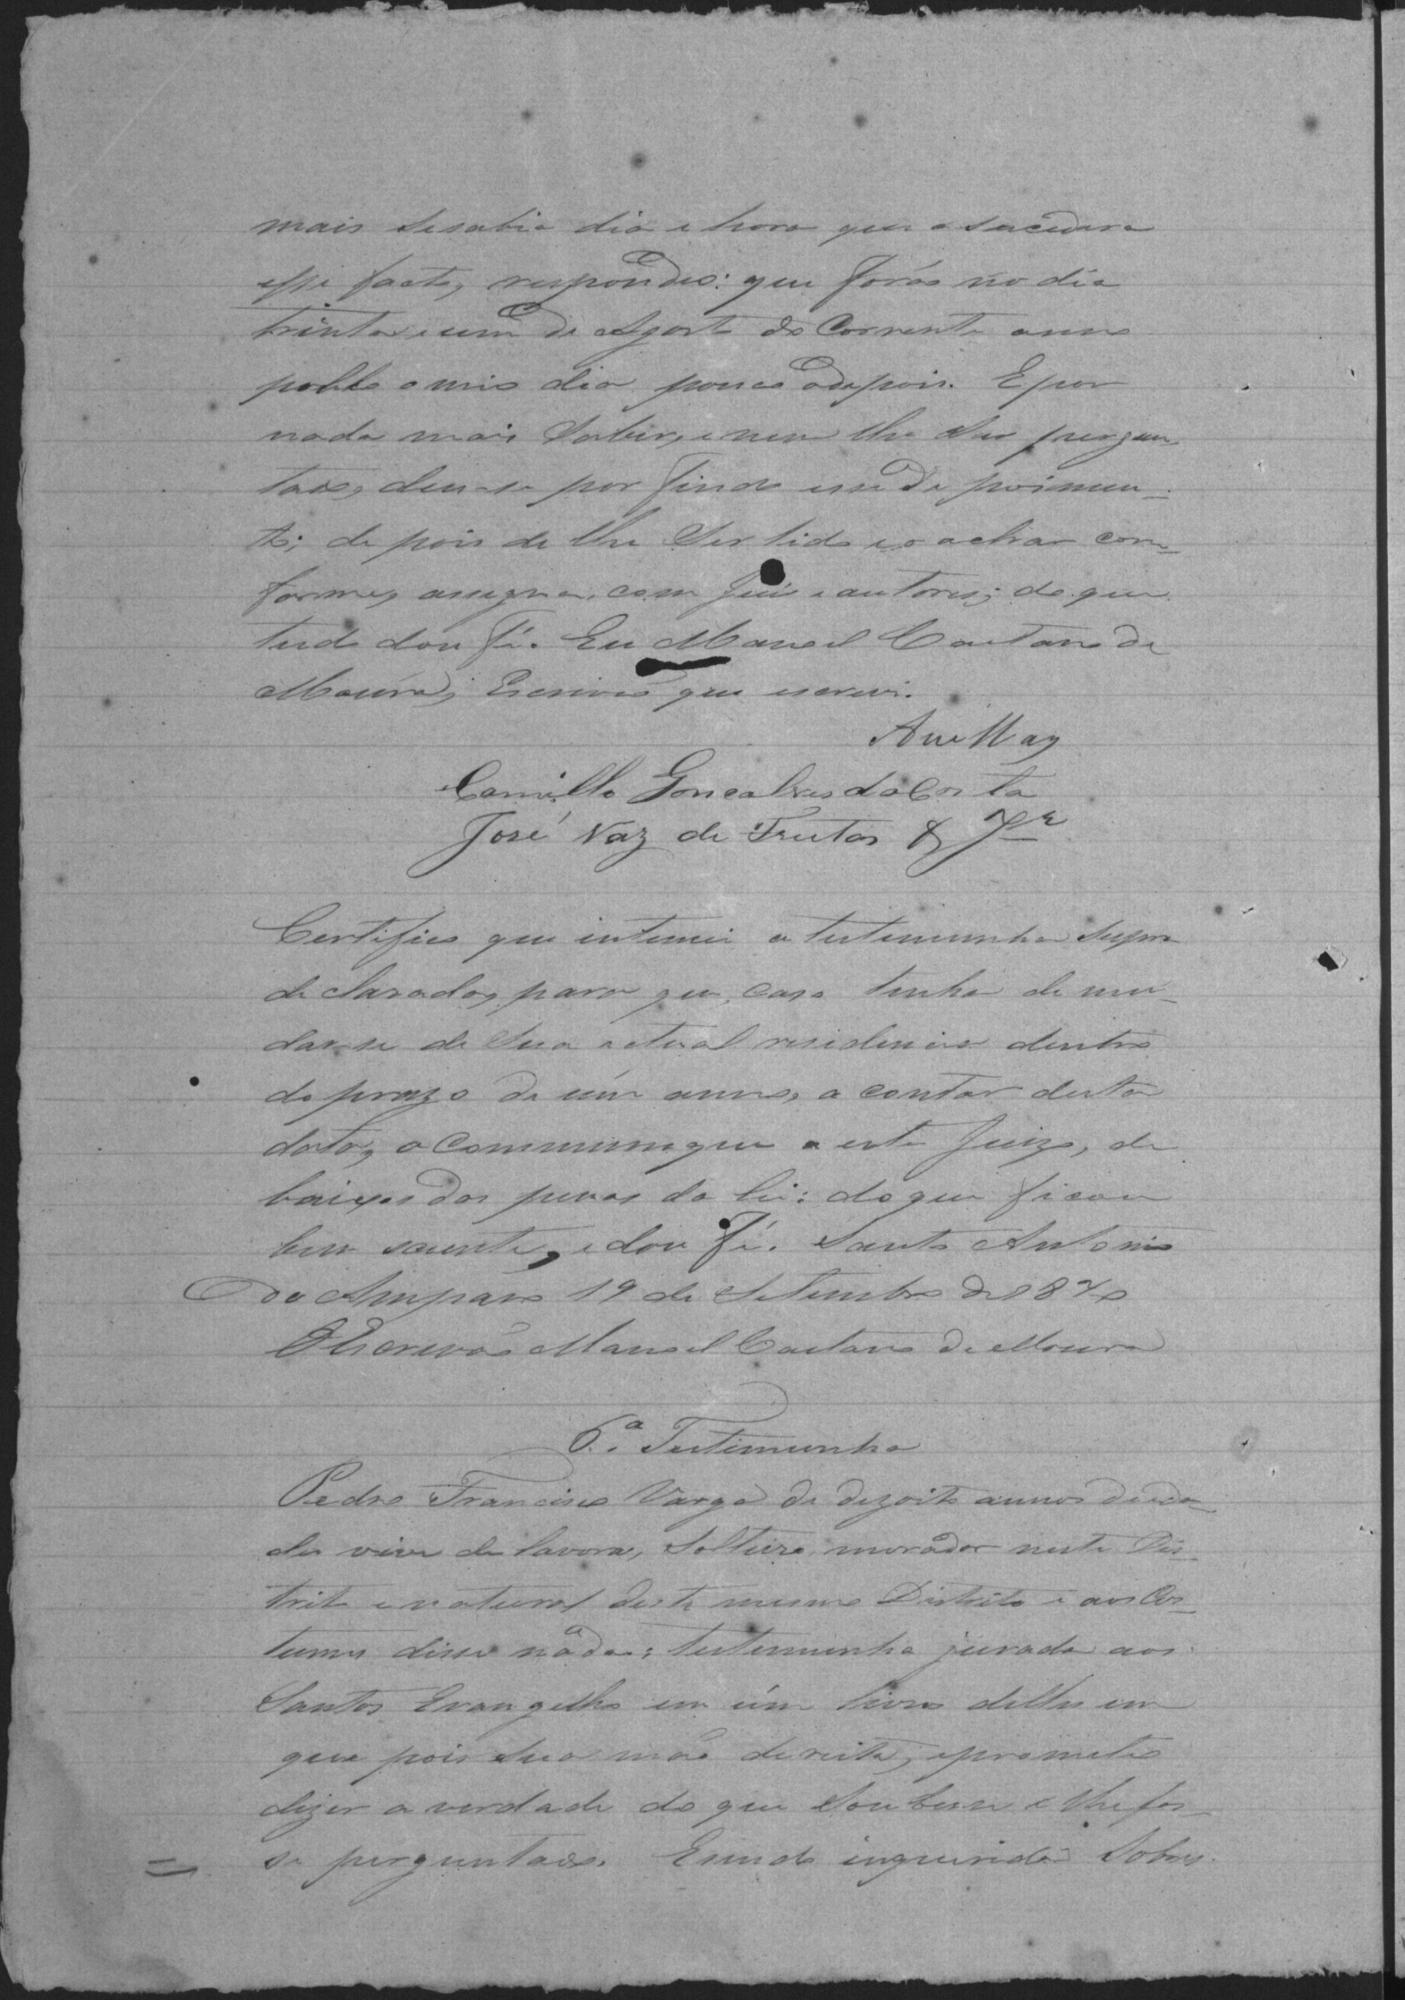 mais se sabia dia e hora que o sucedera
esse facto, respondeo: que fora no dia
trinta e um de Agosto do Corrente anno
pello o meio dia pouco adepois. E por
nada mais Saber, e nem lhe Ser pergun-
tado, deu-se por findo esse depoimen-
to; depois de lhe Ser lido e o achar con-
forme, assigna, com Juis e autores; do que
tudo dou fé. Eu Manoel Caetano de
Moura, Escrivão que escrevi.
Camillo Gonçalves da Costa
José Vaz de Freitas & Jr
Certifico que intimei a testemunha Supra
declarada, para que, caso tenha de mu-
dar-se de Sua actual residencia dentro
do prazo de úm anno, a contar desta
data, o communique a este Juizo, de
baixo das penas da lei: do que ficou
bem sciente, e dou fé. Santo Antonio
do Amparo 19 de Setembro de 187
O Escrivão Manoel Caetano de Moura
6.ª Testimunha
Pedro Francisco Vargo de dezoito annos de ida-
de vive de lavora, Solteiro, morador neste Dis-
trito e natural deste mesmo Distrito e aos Cos-
tumes disse nada: testemunha jurada aos
Santos Evangelho em úm livro delles em
que pois Sua mão dereita, e prometeo
dizer a verdade do que Soubese e lhe fos-
se perguntado. E sendo inquerida Sobre